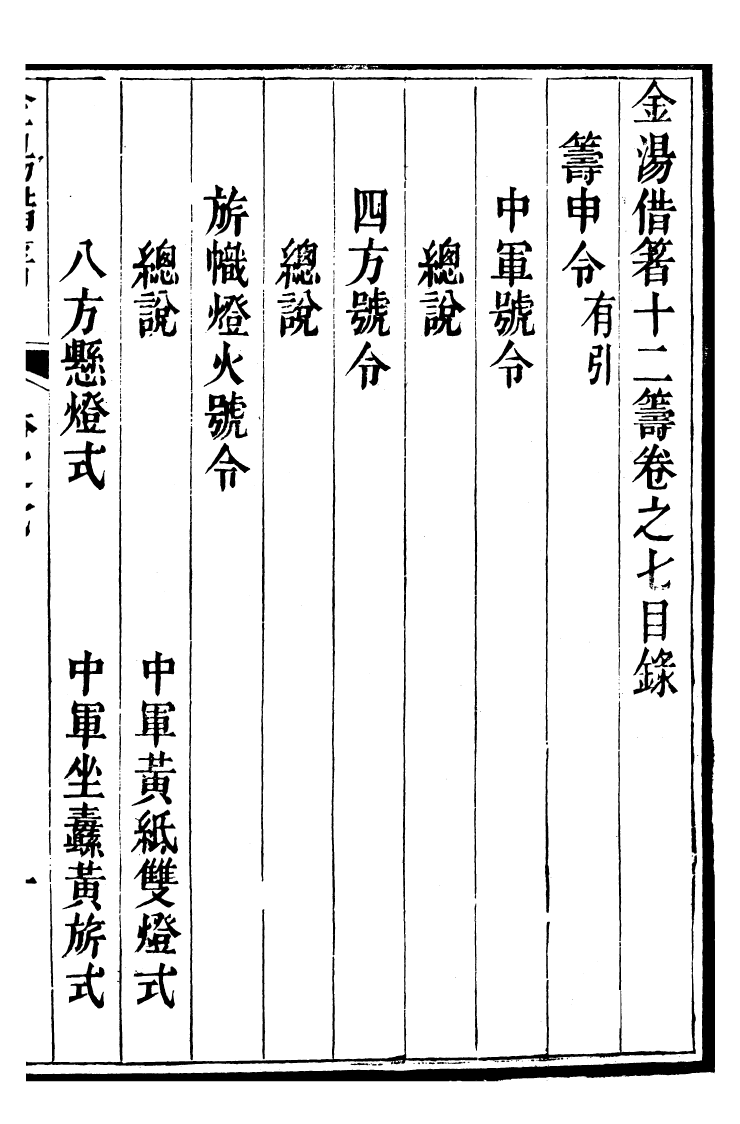 金湯借箸十二籌卷之七目錄
籌申令有引
中軍號令
總說
四方號令
總說
旂幟燈火號令
總說　中軍黃紙雙燈式
八方懸燈式　中軍坐纛黃旂式